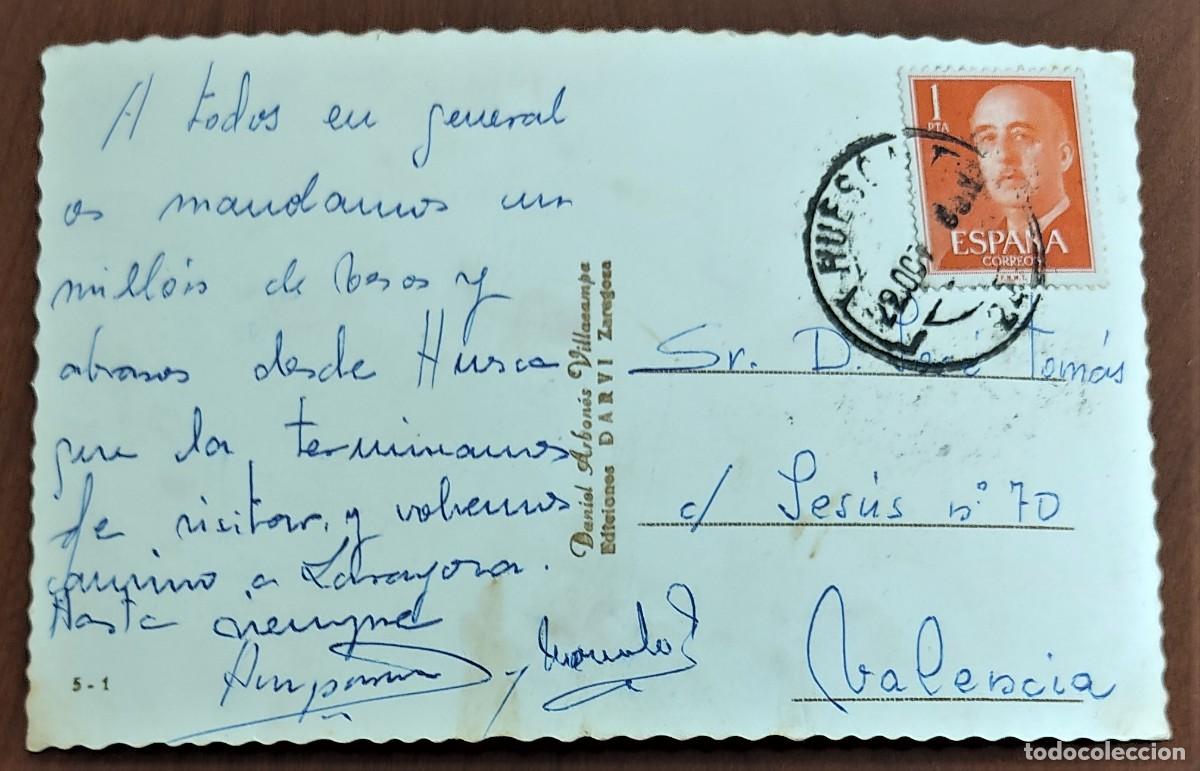 A todos en general
os mandamos un
millón de besos y
abrasos desde Huesca
que la terminamos
de visitar, y volvemos
camino a Zaragoza.
Hasta siempre
Amparo y
5-1
Daniel Arbonés Villacampa
Ediciones DARVI Zaragoza
1
PTA
ESPAÑA
CORREOS
F.N.M.T.
HUESCA
22 OCT
Sr. D. José Tomás
c/ Jesús nº 70
Valencia
todocoleccion